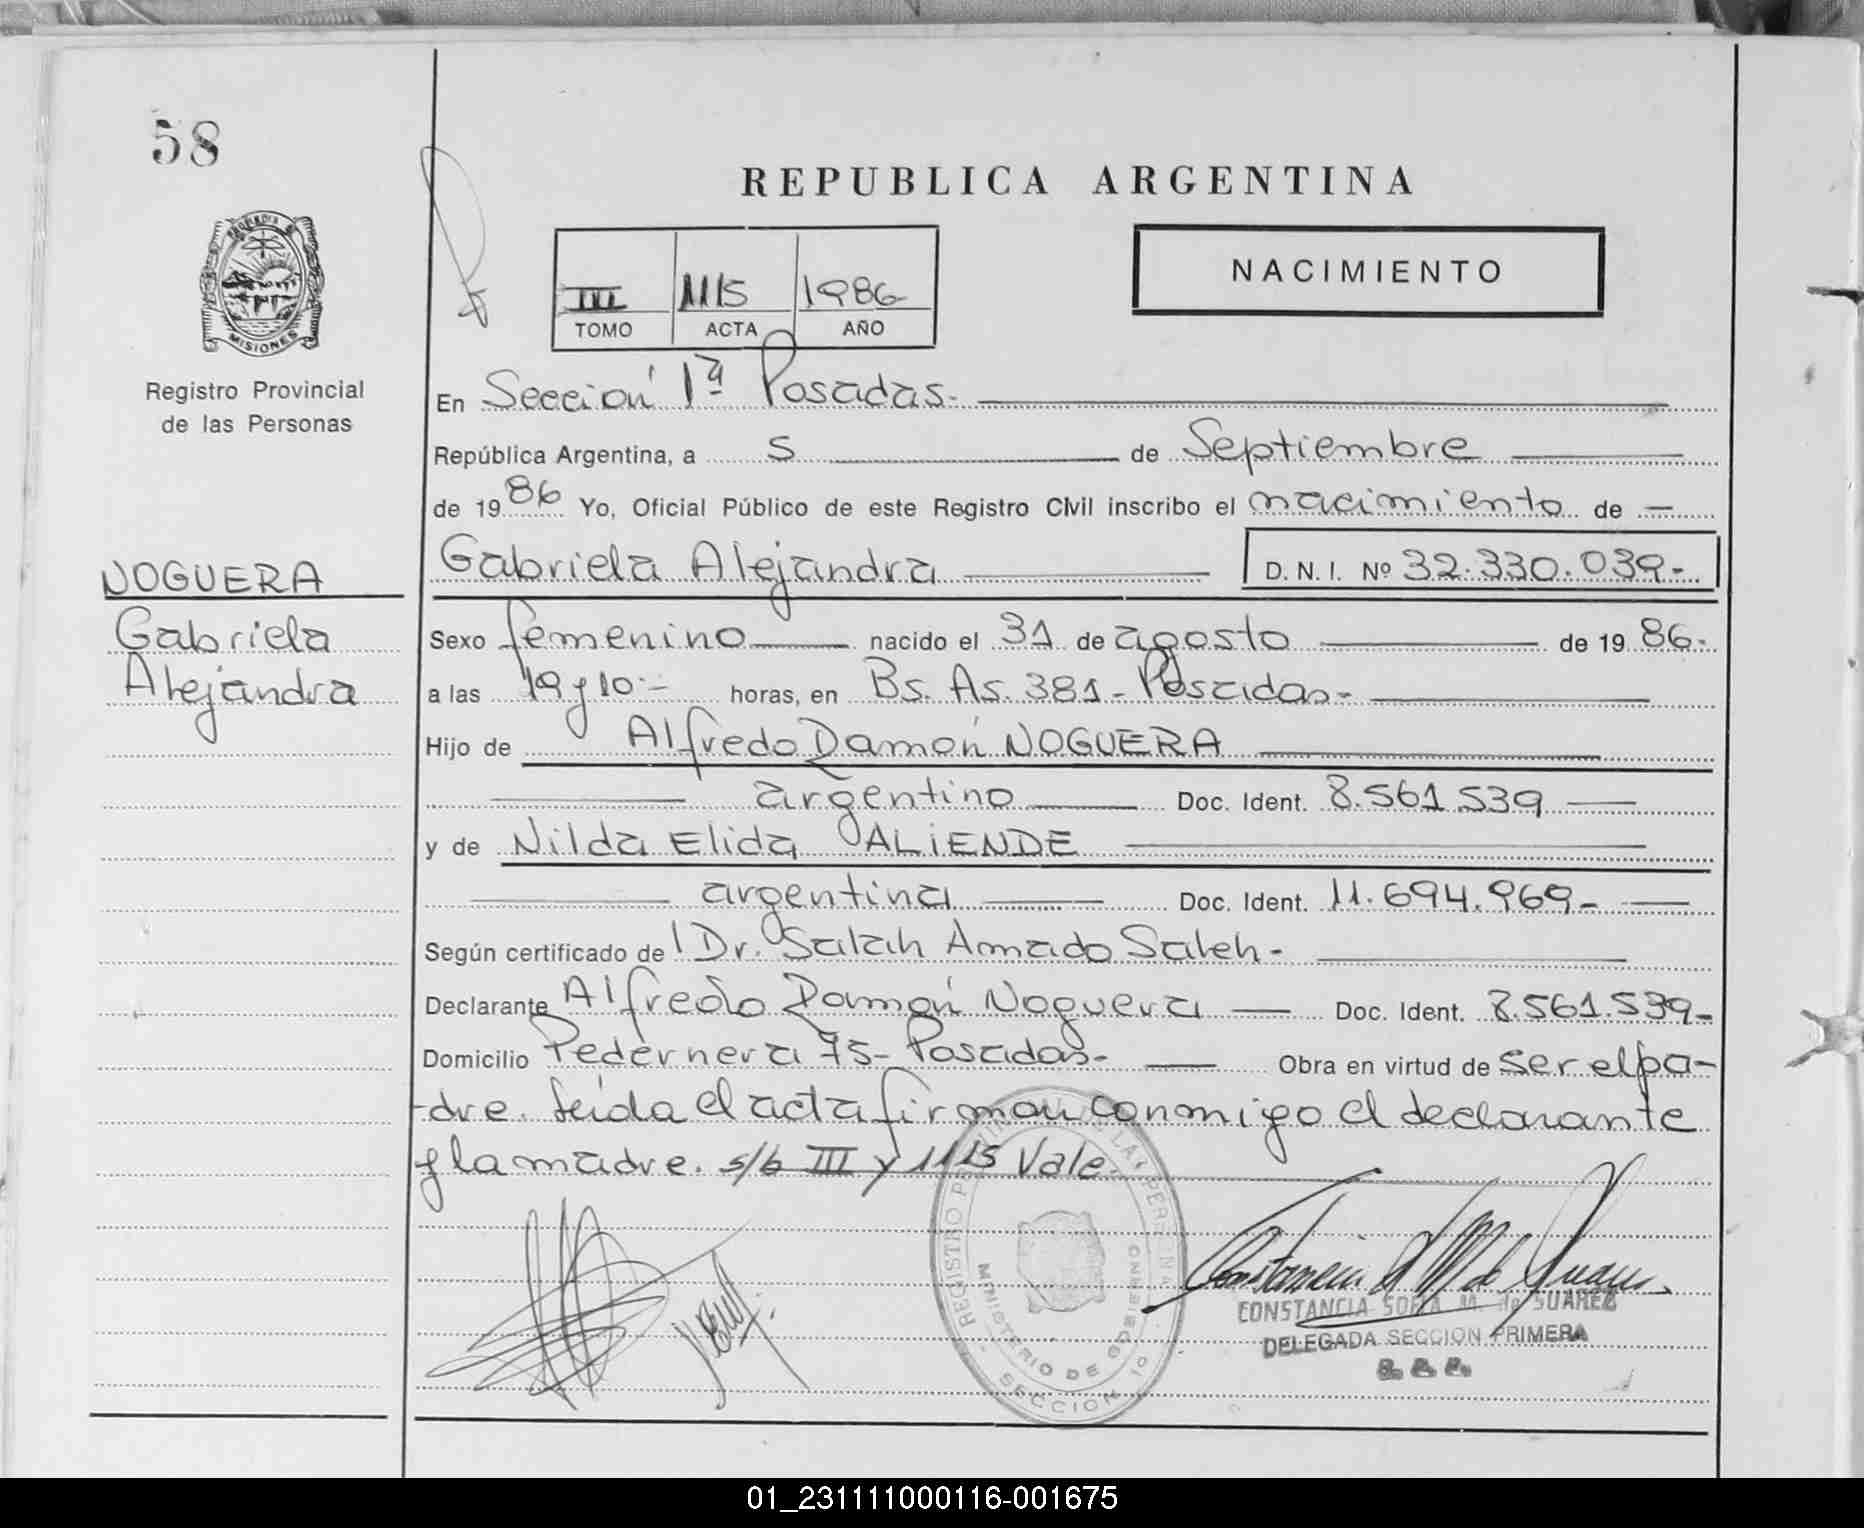 58
REPUBLICA ARGENTINA
NACIMIENTO
III 1115 1986
TOMO ACTA AÑO
MISIONES
Registro Provincial
de las Personas
En Sección 1ª Posadas.-
República Argentina, a 5 de Septiembre
de 1986 Yo, Oficial Público de este Registro Civil inscribo el nacimiento de —
Gabriela Alejandra D.N.I. Nº 32.330.039.-
NOGUERA
Gabriela
Alejandra
Sexo femenino nacido el 31 de agosto de 1986.-
a las 19 y 10.- horas, en Bs. As. 381 - Posadas.-
Hijo de Alfredo Ramón NOGUERA
argentino Doc. Ident. 8.561.539
y de Nilda Elida ALIENDE
argentina Doc. Ident. 11.694.969.-
Según certificado de Dr. Salah Amado Saleh.-
Declarante Alfredo Ramón Noguera Doc. Ident. 8.561.539.-
Domicilio Pedernera 75 - Posadas.- Obra en virtud de ser el pa-
dre. Leida el acta firman conmigo el declarante
y la madre. s/b III y 1115 Vale.
REGISTRO PROVINCIAL DE LAS PERSONAS
MINISTERIO DE GOBIERNO
SECCION 1º
CONSTANCIA SOFIA M. de SUAREZ
DELEGADA SECCION PRIMERA
01_231111000116-001675